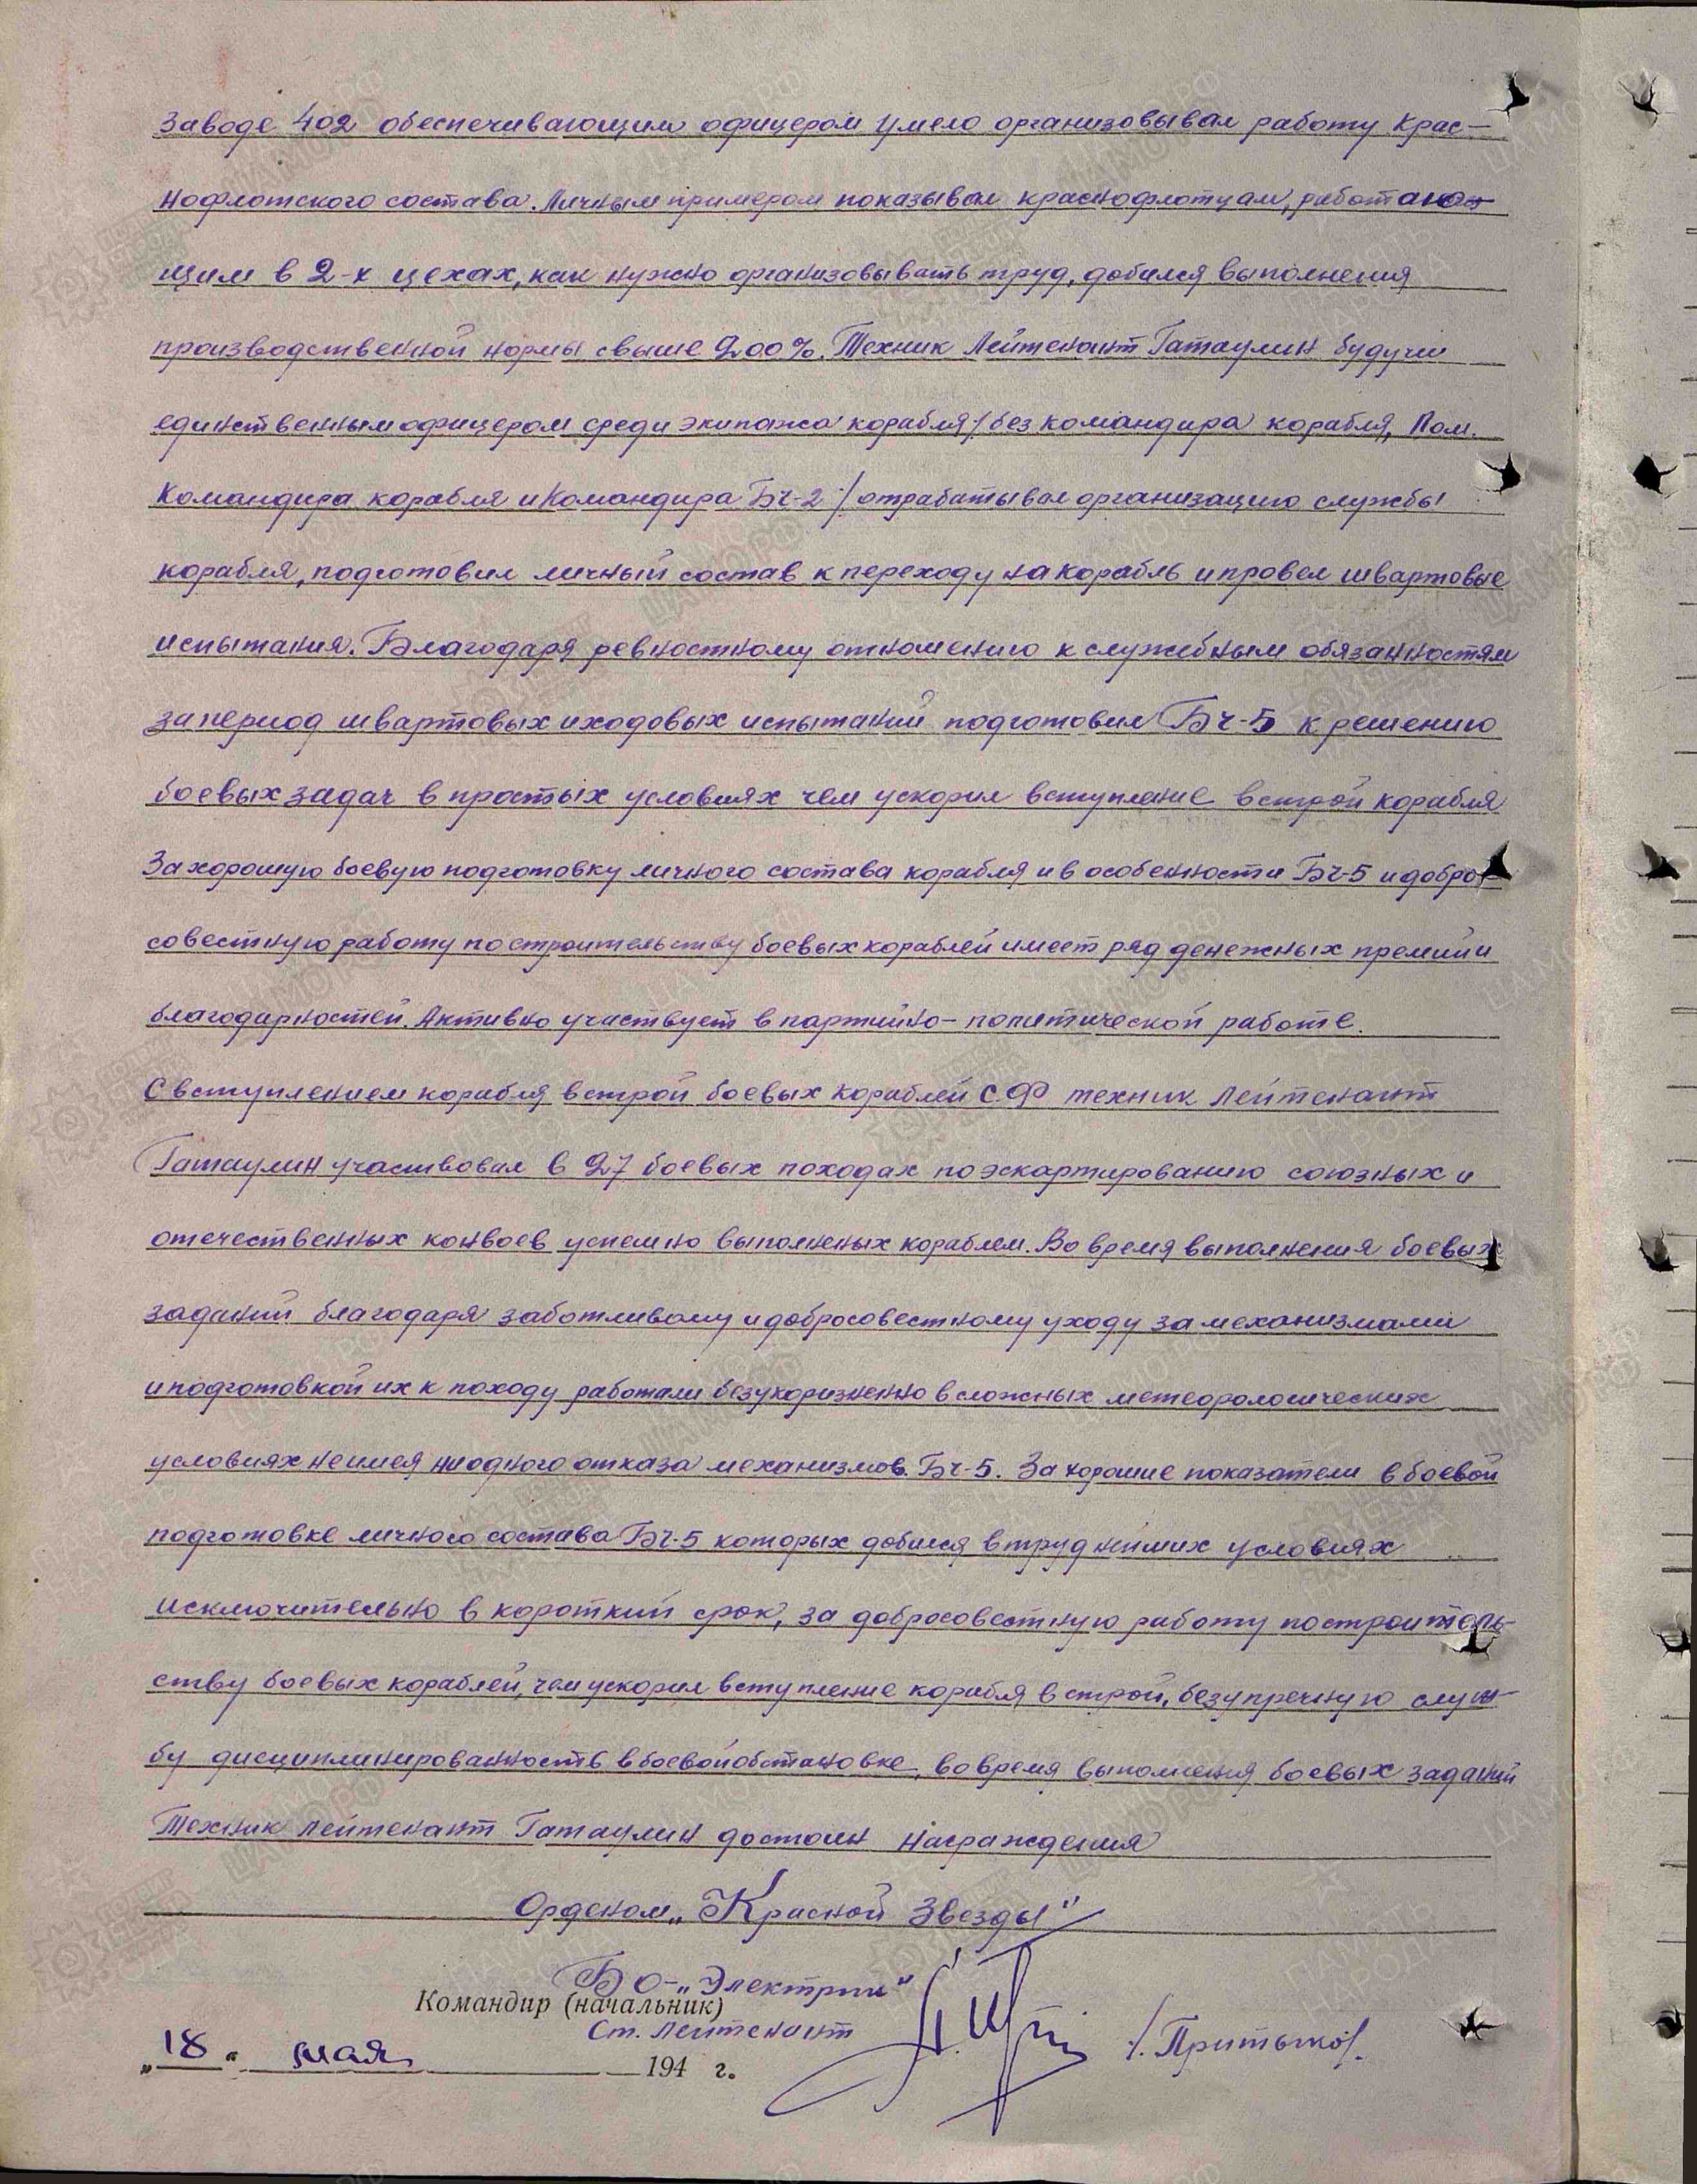 Заводе 402 обеспечивающим офицером умело организовывал работу Крас-
нофлотского состава. Личным примером показывал краснофлотцам, работаю-
щим в 2-х цехах, как нужно организовывать труд, добился выполнения
производственной нормы свыше 200%. Техник Лейтенант Гатаулин будучи
единственным офицером среди экипажа корабля /без командира корабля, Пом.
Командира корабля и Командира БЧ-2/ отрабатывал организацию службы
корабля, подготовил личный состав к переходу на корабль и провел швартовые
испытания. Благодаря ревностному отношению к служебным обязанностям
за период швартовых и ходовых испытаний подготовил БЧ-5 к решению
боевых задач в простых условиях чем ускорил вступление в строй корабля
За хорошую боевую подготовку личного состава корабля и в особенности БЧ-5 и добро-
совестную работу по строительству боевых кораблей имеет ряд денежных премий и
благодарностей. Активно участвует в партийно-политической работе.
С вступлением корабля в строй боевых кораблей С.Ф техник лейтенант
Гатаулин участвовал в 27 боевых походах по эскартированию союзных и
отечественных конвоев успешно выполненых кораблем. Во время выполнения боевых
заданий благодаря заботливому и добросовестному уходу за механизмами
и подготовкой их к походу работали безукоризненно в сложных метеорологических
условиях не имея ни одного отказа механизмов БЧ-5. За хорошие показатели в боевой
подготовке личного состава БЧ-5 которых добился в труднейших условиях
исключительно в короткий срок, за добросовестную работу по строитель-
ству боевых кораблей, чем ускорил вступление корабля в строй, безупречную служ-
бу дисциплинированность в боевой обстановке, во время выполнения боевых заданий
Техник лейтенант Гатаулин достоин награждения
Орденом „Красной Звезды"
БО-„Электрик"
Командир (начальник)
Ст. лейтенант
/.Притыко/.
„18" мая 194 г.